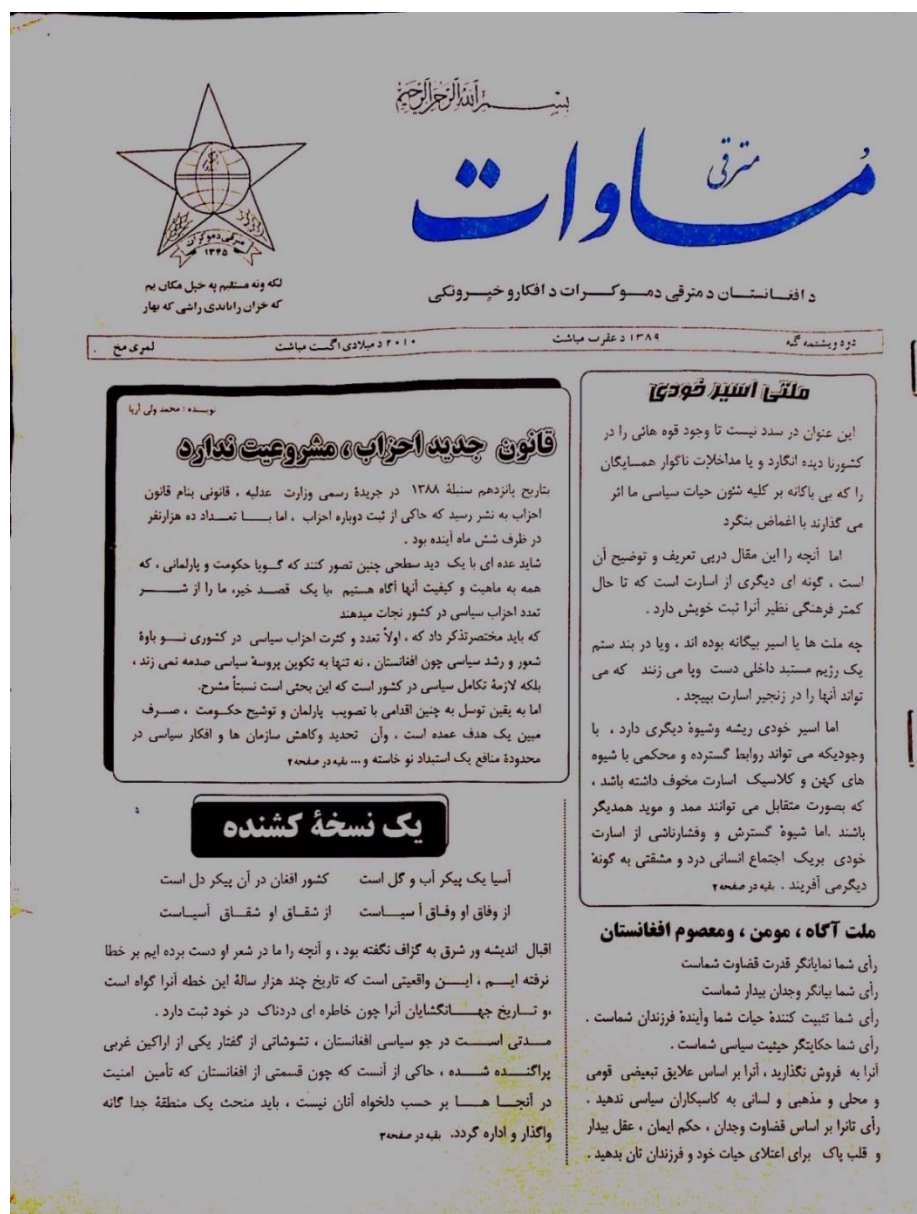 بسم الله الرحمن الرحیم
مترقی
مُساوات
مترقی دموکرات
۱۳۴۵
لکه ونه مستقیم په خپل مکان یم
که خزان راباندی راشی که بهار
د افغانستان د مترقی دموکرات د افکارو خپرونکی
دوه ویشتمه گڼه
۱۳۸۹ د عقرب میاشت
۲۰۱۰ د میلادی اگست میاشت
لمری مخ
ملتی اسیر خودی
این عنوان در سدد نیست تا وجود قوه هائی را در
کشورنا دیده انگارد و یا مداخلات ناگوار همسایگان
را که بی باکانه بر کلیه شئون حیات سیاسی ما اثر
می گذارند با اغماض بنگرد
اما آنچه را این مقال درپی تعریف و توضیح آن
است ، گونه ای دیگری از اسارت است که تا حال
کمتر فرهنگی نظیر آنرا ثبت خویش دارد .
چه ملت ها یا اسیر بیگانه بوده اند ، ویا در بند ستم
یک رژیم مستبد داخلی دست وپا می زنند که می
تواند آنها را در زنجیر اسارت بپیچد .
اما اسیر خودی ریشه وشیوهٔ دیگری دارد ، با
وجودیکه می تواند روابط گسترده و محکمی با شیوه
های کهن و کلاسیک اسارت مخوف داشته باشد ،
که بصورت متقابل می توانند ممد و موید همدیگر
باشند .اما شیوهٔ گسترش و وفشارناشی از اسارت
خودی بریک اجتماع انسانی درد و مشقتی به گونهٔ
دیگرمی آفریند . بقیه در صفحه ۲
ملت آگاه ، مومن ، ومعصوم افغانستان
رأی شما نمایانگر قدرت قضاوت شماست
رأی شما بیانگر وجدان بیدار شماست
رأی شما تثبیت کنندهٔ حیات شما وآیندهٔ فرزندان شماست .
رأی شما حکایتگر حیثیت سیاسی شماست .
آنرا به فروش نگذارید ، آنرا بر اساس علایق تبعیضی قومی
و محلی و مذهبی و لسانی به کاسبکاران سیاسی ندهید .
رأی تانرا بر اساس قضاوت وجدان ، حکم ایمان ، عقل بیدار
و قلب پاک برای اعتلای حیات خود و فرزندان تان بدهید .
نویسنده : محمد ولی آریا
قانون جدید احزاب ، مشروعیت ندارد
بتاریخ پانزدهم سنبلهٔ ۱۳۸۸ در جریدهٔ رسمی وزارت عدلیه ، قانونی بنام قانون
احزاب به نشر رسید که حاکی از ثبت دوباره احزاب ، اما بـا تعـداد ده هزارنفر
در ظرف شش ماه آینده بود .
شاید عده ای با یک دید سطحی چنین تصور کنند که گـویا حکومت و پارلمانی ، که
همه به ماهیت و کیفیت آنها آگاه هستیم ،با یک قصـد خیر، ما را از شـر
تعدد احزاب سیاسی در کشور نجات میدهند
که باید مختصرتذکر داد که ، اولاً تعدد و کثرت احزاب سیاسی در کشوری نـو باوهٔ
شعور و رشد سیاسی چون افغانستان ، نه تنها به تکوین پروسهٔ سیاسی صدمه نمی زند ،
بلکه لازمهٔ تکامل سیاسی در کشور است که این بحثی است نسبتاً مشرح.
اما به یقین توسل به چنین اقدامی با تصویب پارلمان و توشیح حکـومت ، صـرف
مبین یک هدف عمده است ، وآن تحدید وکاهش سازمان ها و افکار سیاسی در
محدودهٔ منافع یک استبداد نو خاسته و... بقیه در صفحه ۲
یک نسخهٔ کشنده
آسیا یک پیکر آب و گل است کشور افغان در آن پیکر دل است
از وفاق او وفـاق آ سیـاست از شقـاق او شقـاق آسیـاست
اقبال اندیشه ور شرق به گزاف نگفته بود ، و آنچه را ما در شعر او دست برده ایم بر خطا
نرفته ایـم ، ایـن واقعیتی است که تاریخ چند هزار سالهٔ این خطه آنرا گواه است
،و تـاریخ جهـانگشایان آنرا چون خاطره ای دردناک در خود ثبت دارد .
مـدتی اسـت در جو سیاسی افغانستان ، تشوشاتی از گفتار یکی از اراکین غربی
پراگنـده شـده ، حاکی از آنست که چون قسمتی از افغانستان که تأمین امنیت
در آنجـا هـا بر حسب دلخواه آنان نیست ، باید منحث یک منطقهٔ جدا گانه
واگذار و اداره گردد. بقیه در صفحه ۳